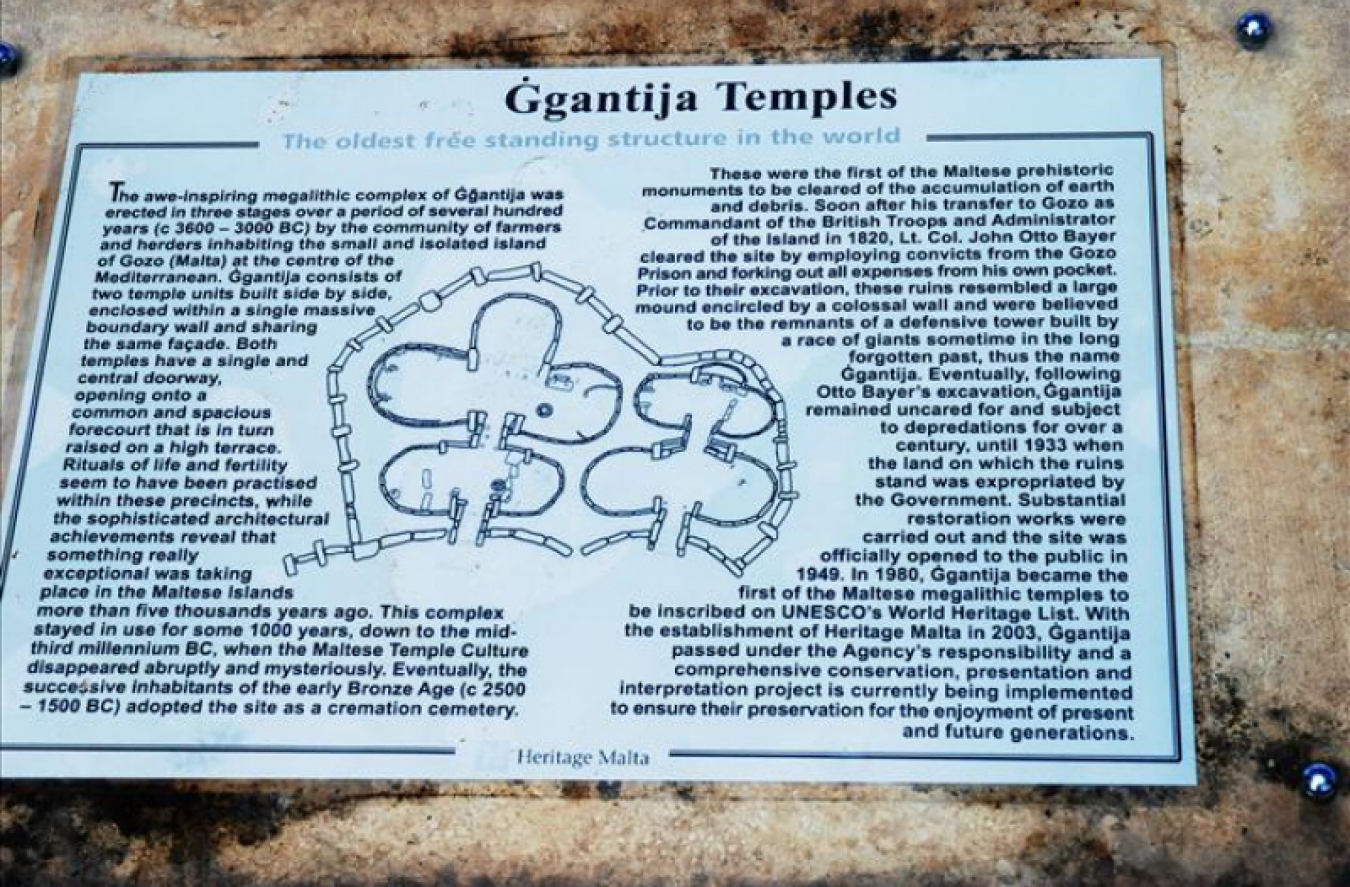 Ġgantija Temples
The oldest free standing structure in the world
The awe-inspiring megalithic complex of Ġgantija was
erected in three stages over a period of several hundred
years (c 3600 – 3000 BC) by the community of farmers
and herders inhabiting the small and isolated island
of Gozo (Malta) at the centre of the
Mediterranean. Ġgantija consists of
two temple units built side by side,
enclosed within a single massive
boundary wall and sharing
the same façade. Both
temples have a single and
central doorway,
opening onto a
common and spacious
forecourt that is in turn
raised on a high terrace.
Rituals of life and fertility
seem to have been practised
within these precincts, while
the sophisticated architectural
achievements reveal that
something really
exceptional was taking
place in the Maltese Islands
more than five thousands years ago. This complex
stayed in use for some 1000 years, down to the mid-
third millennium BC, when the Maltese Temple Culture
disappeared abruptly and mysteriously. Eventually, the
successive inhabitants of the early Bronze Age (c 2500
– 1500 BC) adopted the site as a cremation cemetery.
These were the first of the Maltese prehistoric
monuments to be cleared of the accumulation of earth
and debris. Soon after his transfer to Gozo as
Commandant of the British Troops and Administrator
of the Island in 1820, Lt. Col. John Otto Bayer
cleared the site by employing convicts from the Gozo
Prison and forking out all expenses from his own pocket.
Prior to their excavation, these ruins resembled a large
mound encircled by a colossal wall and were believed
to be the remnants of a defensive tower built by
a race of giants sometime in the long
forgotten past, thus the name
Ġgantija. Eventually, following
Otto Bayer's excavation, Ġgantija
remained uncared for and subject
to depredations for over a
century, until 1933 when
the land on which the ruins
stand was expropriated by
the Government. Substantial
restoration works were
carried out and the site was
officially opened to the public in
1949. In 1980, Ġgantija became the
first of the Maltese megalithic temples to
be inscribed on UNESCO's World Heritage List. With
the establishment of Heritage Malta in 2003, Ġgantija
passed under the Agency's responsibility and a
comprehensive conservation, presentation and
interpretation project is currently being implemented
to ensure their preservation for the enjoyment of present
and future generations.
Heritage Malta